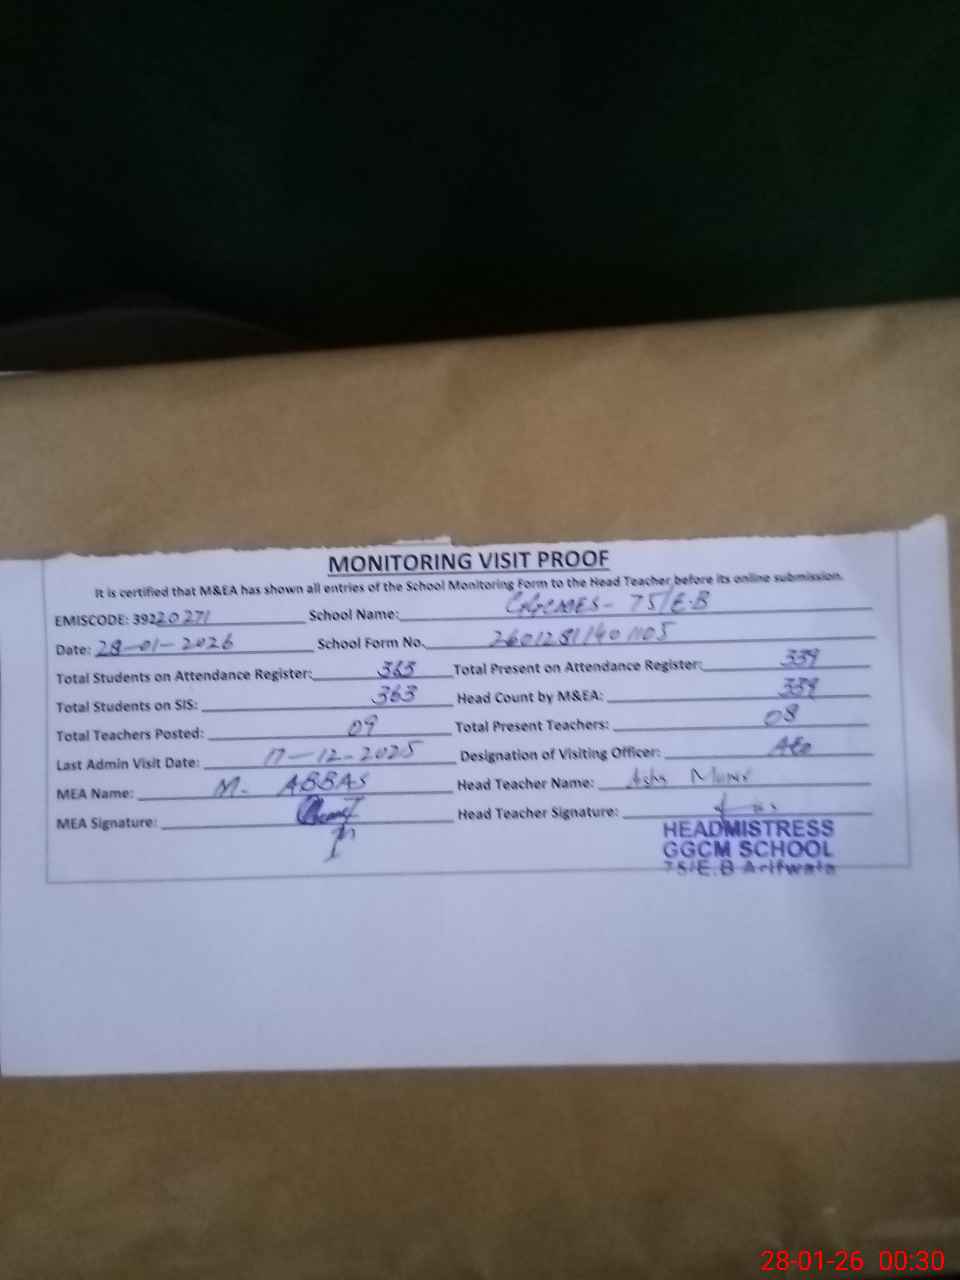 MONITORING VISIT PROOF
It is certified that M&EA has shown all entries of the School Monitoring Form to the Head Teacher before its online submission.
EMISCODE: 39220271 School Name: GGCMES- 75/E.B
Date: 28-01-2026 School Form No. 26012811401105
Total Students on Attendance Register: 363 Total Present on Attendance Register: 339
Total Students on SIS: 363 Head Count by M&EA: 339
Total Teachers Posted: 09 Total Present Teachers: 08
Last Admin Visit Date: 17-12-2025 Designation of Visiting Officer: AEO
MEA Name: M. ABBAS Head Teacher Name:
MEA Signature: Head Teacher Signature:
HEADMISTRESS
GGCM SCHOOL
75/E.B Arifwala
28-01-26 00:30